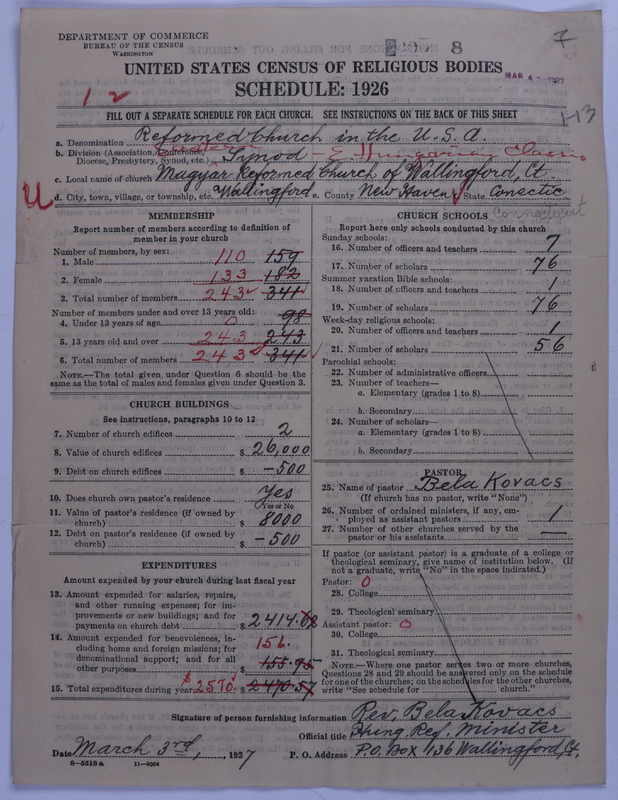 DEPARTMENT OF COMMERCE
BUREAU OF THE CENSUS
WASHINGTON
8
7
UNITED STATES CENSUS OF RELIGIOUS BODIES
SCHEDULE: 1926
MAR
1 2
FILL OUT A SEPARATE SCHEDULE FOR EACH CHURCH. SEE INSTRUCTIONS ON THE BACK OF THIS SHEET
1-13
a. Denomination Reformed Church in the U.S.A.
b. Division (Association, Conference, Diocese, Presbytery, Synod, etc.) Synod - E. Hungarian Classis
c. Local name of church Magyar Reformed Church of Wallingford, Ct.
d. City, town, village, or township, etc. Wallingford e. County New Haven f. State Conectic
Connecticut
MEMBERSHIP
Report number of members according to definition of
member in your church
Number of members, by sex:
1. Male 110 159
2. Female 133 182
3. Total number of members 243 341
Number of members under and over 13 years old:
4. Under 13 years of age 0 98
5. 13 years old and over 243 243
6. Total number of members 243 341
NOTE.—The total given under Question 6 should be
the same as the total of males and females given under Question 3.
CHURCH BUILDINGS
See instructions, paragraphs 10 to 12
7. Number of church edifices 2
8. Value of church edifices $ 26,000
9. Debt on church edifices $ —500
10. Does church own pastor's residence Yes
Yes or No
11. Value of pastor's residence (if owned by
church) $ 8000
12. Debt on pastor's residence (if owned by
church) $ —500
EXPENDITURES
Amount expended by your church during last fiscal year
13. Amount expended for salaries, repairs,
and other running expenses; for im-
provements or new buildings; and for
payments on church debt $ 2414.62
14. Amount expended for benevolences, in-
cluding home and foreign missions; for
denominational support; and for all
other purposes $ 155.95
156.
15. Total expenditures during year $2570. $ 2470.57
CHURCH SCHOOLS
Report here only schools conducted by this church
Sunday schools:
16. Number of officers and teachers 7
17. Number of scholars 76
Summer vacation Bible schools:
18. Number of officers and teachers 1
19. Number of scholars 76
Week-day religious schools:
20. Number of officers and teachers 1
21. Number of scholars 56
Parochial schools:
22. Number of administrative officers
23. Number of teachers—
a. Elementary (grades 1 to 8)
b. Secondary
24. Number of scholars—
a. Elementary (grades 1 to 8)
b. Secondary
PASTOR
25. Name of pastor Bela Kovacs
(If church has no pastor, write "None")
26. Number of ordained ministers, if any, em-
ployed as assistant pastors 1
27. Number of other churches served by the
pastor or his assistants —
If pastor (or assistant pastor) is a graduate of a college or
theological seminary, give name of institution below. (If
not a graduate, write "No" in the space indicated.)
Pastor: 0
28. College
29. Theological seminary
Assistant pastor: 0
30. College
31. Theological seminary
NOTE.—Where one pastor serves two or more churches,
Questions 28 and 29 should be answered only on the schedule
for one of the churches; on the schedules for the other churches,
write "See schedule for church."
Signature of person furnishing information Rev. Bela Kovacs
Official title Hung. Ref. Minister
Date March 3rd, 1927 P. O. Address P.O. Box 136 Wallingford, Ct.
8-5518 a 11-9054